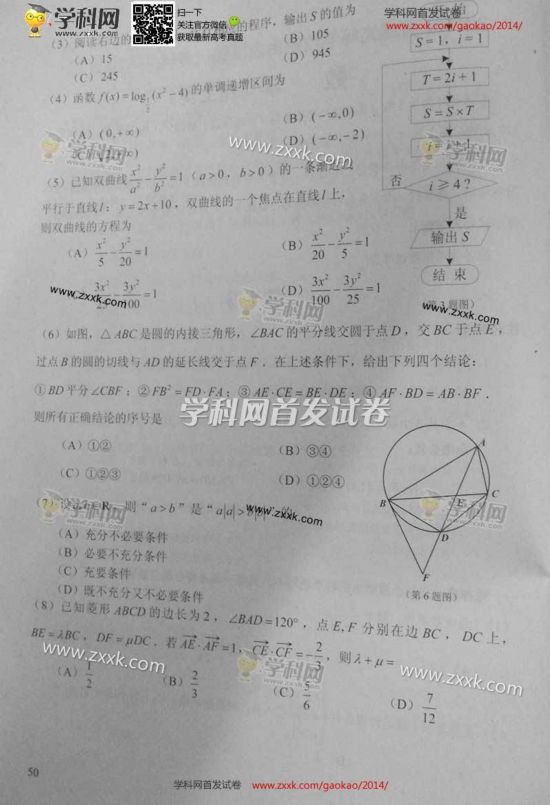 学科网
WWW.ZXXK.COM
扫一下
关注官方微信
获取最新高考真题
学科网首发试卷
www.zxxk.com/gaokao/2014/
开始
(3) 阅读右边的 的程序,输出 S 的值为
(A) 15
(B) 105
(C) 245
(D) 945
S=1, i=1
T=2i+1
S=S×T
i=i+1
i≥4?
否
是
输出 S
结束
(第3题图)
(4) 函数 f(x)=log_{1/2}(x²-4) 的单调递增区间为
(A) (0,+∞)
(B) (-∞,0)
(D) (-∞,-2)
学科网
www.zxxk.com
(5) 已知双曲线 x²/a² - y²/b² =1 (a>0, b>0) 的一条
平行于直线 l: y=2x+10, 双曲线的一个焦点在直线 l 上,
则双曲线的方程为
(A) x²/5 - y²/20 =1
(B) x²/20 - y²/5 =1
3x²/ - 3y²/100 =1
(D) 3x²/100 - 3y²/25 =1
www.zxxk.com
学科网
www.zxxk.com
(6) 如图, △ABC 是圆的内接三角形, ∠BAC 的平分线交圆于点 D, 交 BC 于点 E,
过点 B 的圆的切线与 AD 的延长线交于点 F. 在上述条件下, 给出下列四个结论:
① BD 平分 ∠CBF; ② FB²=FD·FA; ③ AE·CE=BE·DE; ④ AF·BD=AB·BF.
则所有正确结论的序号是
学科网首发试卷
(A) ①②
(B) ③④
(C) ①②③
(D) ①②④
A
B
C
D
E
F
(第6题图)
(7) 设 a, b∈R, 则“a>b”是“a|a|>b|b|”的
学科网
www.zxxk.com
(A) 充分不必要条件
(B) 必要不充分条件
(C) 充要条件
(D) 既不充分又不必要条件
(8) 已知菱形 ABCD 的边长为 2, ∠BAD=120°, 点 E, F 分别在边 BC, DC 上,
BE=λBC, DF=μDC. 若 AE·AF=1, CE·CF=-2/3, 则 λ+μ=
(A) 1/2
(B) 2/3
(C) 5/6
(D) 7/12
www.zxxk.com
学科网
www.zxxk.com
50
学科网首发试卷
www.zxxk.com/gaokao/2014/